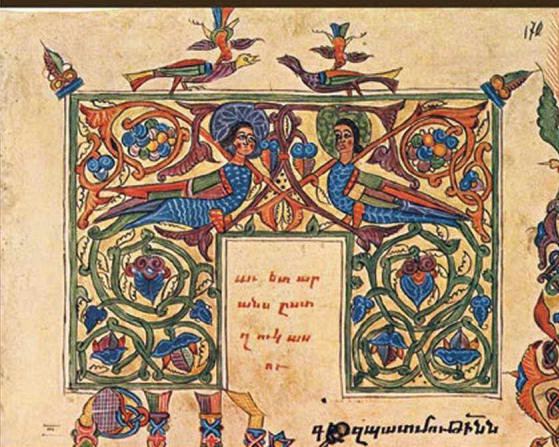 170
աւ ետ ար
անս ըստ
ղ ուկ աս
ու
զպատմութինն